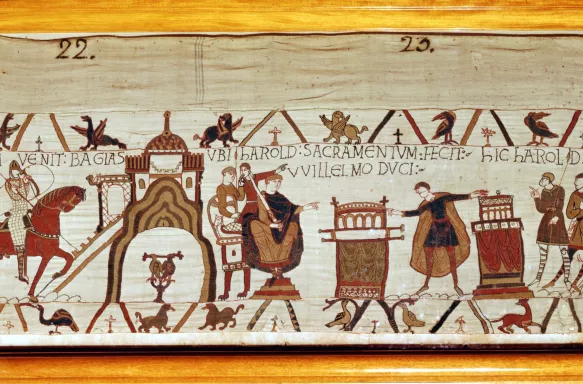 22. 23.
VENIT: BAGIAS VBI hAROLD: SACRAMENTVM: FECIT: hIC hAROLD D
VVILLELMO DVCI: